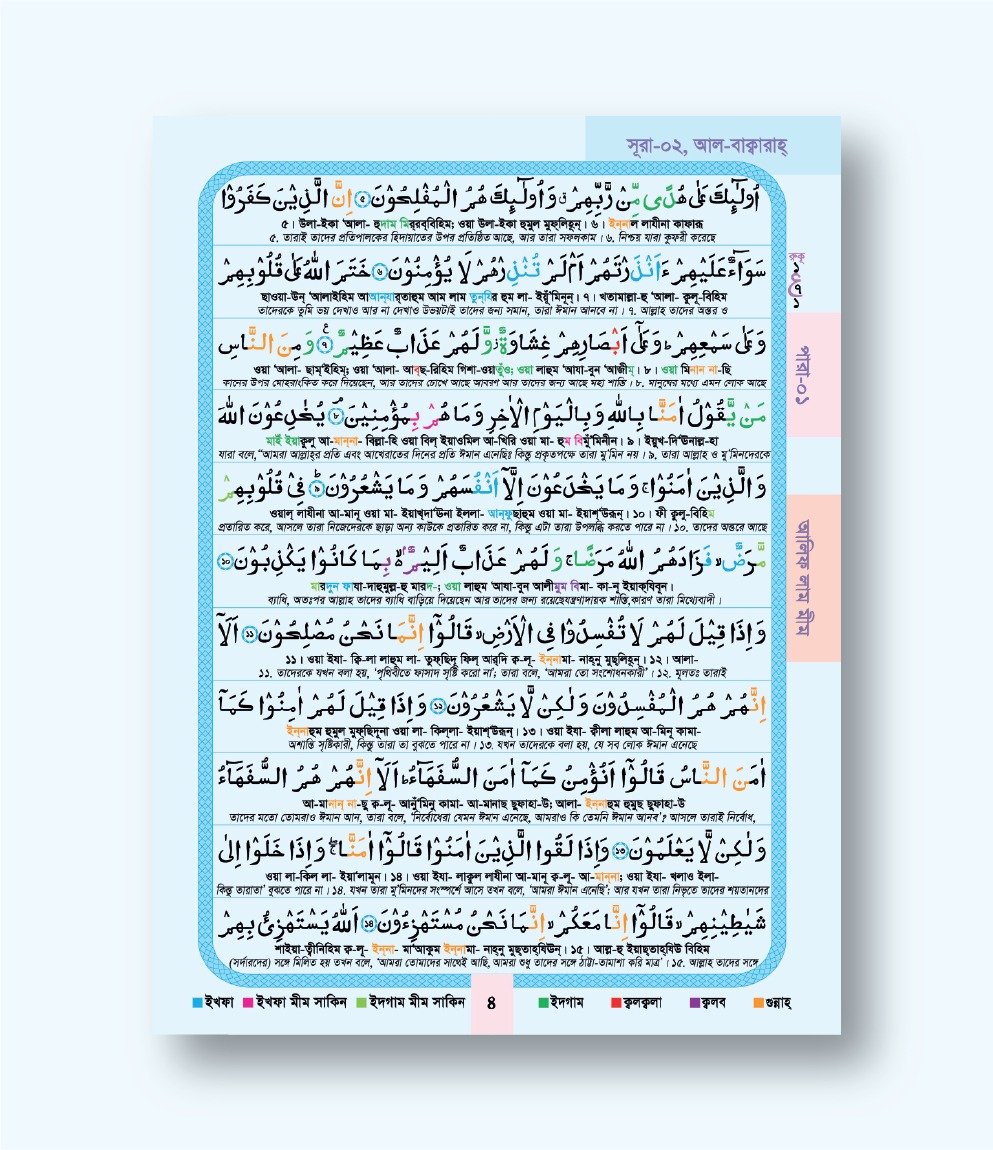 সূরা-০২, আল-বাক্বারাহ্
اُولٰٓئِكَ عَلٰى هُدًى مِّنْ رَّبِّهِمْ ۗ وَاُولٰٓئِكَ هُمُ الْمُفْلِحُوْنَ ۝٥ اِنَّ الَّذِيْنَ كَفَرُوْا
৫। উলা-ইকা ‘আলা- হুদাম মিররব্বিহিম; ওয়া উলা-ইকা হুমুল মুফ্লিহূন্। ৬। ইন্নাল লাযীনা কাফারূ
৫. তারাই তাদের প্রতিপালকের হিদায়াতের উপর প্রতিষ্ঠিত আছে, আর তারা সফলকাম। ৬. নিশ্চয় যারা কুফরী করেছে
سَوَآءٌ عَلَيْهِمْ ءَاَنْذَرْتَهُمْ اَمْ لَمْ تُنْذِرْهُمْ لَا يُؤْمِنُوْنَ ۝٦ خَتَمَ اللّٰهُ عَلٰى قُلُوْبِهِمْ
ছাওয়া-উন্ ‘আলাইহিম আআন্যার্তাহুম আম লাম তুন্যির হুম লা- ইয়ু’মিনূন্। ৭। খতামাল্লা-হু ‘আলা- ক্বুলূ-বিহিম
তাদেরকে তুমি ভয় দেখাও আর না দেখাও উভয়টাই তাদের জন্য সমান, তারা ঈমান আনবে না। ৭. আল্লাহ তাদের অন্তর ও
রুকূ
১
৭
১
وَعَلٰى سَمْعِهِمْ ؕ وَعَلٰٓى اَبْصَارِهِمْ غِشَاوَةٌ ؗ وَّلَهُمْ عَذَابٌ عَظِيْمٌ ۝٧ وَمِنَ النَّاسِ
ওয়া ‘আলা- ছাম্‘ইহিম্; ওয়া ‘আলা- আবৃছ-রিহিম গিশা-ওয়াতুঁও; ওয়া লাহুম ‘আযা-বুন ‘আজীম্। ৮। ওয়া মিনান না-ছি
কানের উপর মোহরাংকিত করে দিয়েছেন, আর তাদের চোখে আছে আবরণ আর তাদের জন্য আছে মহা শাস্তি। ৮. মানুষের মধ্যে এমন লোক আছে
পারা-০১
مَنْ يَّقُوْلُ اٰمَنَّا بِاللّٰهِ وَبِالْيَوْمِ الْاٰخِرِ وَمَا هُمْ بِمُؤْمِنِيْنَ ۝٨ يُخٰدِعُوْنَ اللّٰهَ
মাইঁ ইয়াক্বূলু আ-মান্না- বিল্লা-হি ওয়া বিল্ ইয়াওমিল আ-খিরি ওয়া মা- হুম বিমু’মিনীন। ৯। ইয়ুখ-দি‘উনাল্ল-হা
যারা বলে,“আমরা আল্লাহ্র প্রতি এবং আখেরাতের দিনের প্রতি ঈমান এনেছিঃ কিন্তু প্রকৃতপক্ষে তারা মু’মিন নয়। ৯. তারা আল্লাহ ও মু’মিনদেরকে
وَالَّذِيْنَ اٰمَنُوْا ۚ وَمَا يَخْدَعُوْنَ اِلَّآ اَنْفُسَهُمْ وَمَا يَشْعُرُوْنَ ؕ۝٩ فِيْ قُلُوْبِهِمْ
ওয়াল্ লাযীনা আ-মানূ ওয়া মা- ইয়াখ্দা‘ঊনা ইল্লা- আন্ফুছাহুম ওয়া মা- ইয়াশ্‘ঊরূন্। ১০। ফী ক্বুলূ-বিহিম
প্রতারিত করে, আসলে তারা নিজেদেরকে ছাড়া অন্য কাউকে প্রতারিত করে না, কিন্তু এটা তারা উপলব্ধি করতে পারে না। ১০. তাদের অন্তরে আছে
আলিফ লাম মীম
مَّرَضٌ ۙ فَزَادَهُمُ اللّٰهُ مَرَضًا ۚ وَلَهُمْ عَذَابٌ اَلِيْمٌۢ ۙ بِمَا كَانُوْا يَكْذِبُوْنَ ۝١٠
মারদুন ফাযা-দাহুমুল্ল-হু মারদ-; ওয়া লাহুম ‘আযা-বুন আলীমুম বিমা- কা-নূ ইয়াকযিবূন।
ব্যাধি, অতঃপর আল্লাহ তাদের ব্যাধি বাড়িয়ে দিয়েছেন আর তাদের জন্য রয়েছেযন্ত্রণাদায়ক শাস্তি,কারণ তারা মিথ্যেবাদী।
وَاِذَا قِيْلَ لَهُمْ لَا تُفْسِدُوْا فِى الْاَرْضِ ۙ قَالُوْٓا اِنَّمَا نَحْنُ مُصْلِحُوْنَ ۝١١ اَلَآ
১১। ওয়া ইযা- ক্বি-লা লাহুম লা- তুফ্ছিদূ ফিল্ আর্দি ক্ব-লূ- ইন্নামা- নাহ্নু মুছ্লিহূন্। ১২। আলা-
১১. তাদেরকে যখন বলা হয়, ‘পৃথিবীতে ফাসাদ সৃষ্টি করো না’; তারা বলে, ‘আমরা তো সংশোধনকারী’। ১২. মূলতঃ তারাই
اِنَّهُمْ هُمُ الْمُفْسِدُوْنَ وَلٰكِنْ لَّا يَشْعُرُوْنَ ۝١٢ وَاِذَا قِيْلَ لَهُمْ اٰمِنُوْا كَمَآ
ইন্নাহুম হুমুল মুফ্ছিদূনা ওয়া লা- কিল্লা- ইয়াশ্‘ঊরূন্। ১৩। ওয়া ইযা- ক্বীলা লাহুম আ-মিনূ কামা-
অশান্তি সৃষ্টিকারী, কিন্তু তারা তা বুঝতে পারে না। ১৩. যখন তাদেরকে বলা হয়, যে সব লোক ঈমান এনেছে
اٰمَنَ النَّاسُ قَالُوْٓا اَنُؤْمِنُ كَمَآ اٰمَنَ السُّفَهَآءُ ؕ اَلَآ اِنَّهُمْ هُمُ السُّفَهَآءُ
আ-মানান্ না-ছু ক্ব-লূ- আনু’মিনু কামা- আ-মানাছ ছুফাহা-উ; আলা- ইন্নাহুম হুমুছ ছুফাহা-উ
তাদের মতো তোমরাও ঈমান আন, তারা বলে, ‘নির্বোধেরা যেমন ঈমান এনেছে, আমরাও কি তেমনি ঈমান আনব’? আসলে তারাই নির্বোধ,
وَلٰكِنْ لَّا يَعْلَمُوْنَ ۝١٣ وَاِذَا لَقُوا الَّذِيْنَ اٰمَنُوْا قَالُوْٓا اٰمَنَّا ۖ وَاِذَا خَلَوْا اِلٰى
ওয়া লা-কিল লা- ইয়া‘লামূন। ১৪। ওয়া ইযা- লাক্বুল লাযীনা আ-মানূ ক্ব-লূ- আ-মান্না; ওয়া ইযা- খলাও ইলা-
কিন্তু তারাতা’ বুঝতে পারে না। ১৪. যখন তারা মু’মিনদের সংস্পর্শে আসে তখন বলে, ‘আমরা ঈমান এনেছি’; আর যখন তারা নিভৃতে তাদের শয়তানদের
شَيٰطِيْنِهِمْ ۙ قَالُوْٓا اِنَّا مَعَكُمْ ۙ اِنَّمَا نَحْنُ مُسْتَهْزِءُوْنَ ۝١٤ اَللّٰهُ يَسْتَهْزِئُ بِهِمْ
শাইয়া-ত্বীনিহিম ক্ব-লূ- ইন্না- মা‘আকুম ইন্নামা- নাহ্নু মুছ্তাহ্যিঊন্। ১৫। আল্ল-হু ইয়াছ্তাহ্যিউ বিহিম
(সর্দারদের) সঙ্গে মিলিত হয় তখন বলে, ‘আমরা তোমাদের সাথেই আছি, আমরা শুধু তাদের সঙ্গে ঠাট্টা-তামাশা করি মাত্র’। ১৫. আল্লাহ তাদের সঙ্গে
ইখফা ইখফা মীম সাকিন ইদগাম মীম সাকিন ৪ ইদগাম ক্বলক্বলা ক্বলব গুন্নাহ্